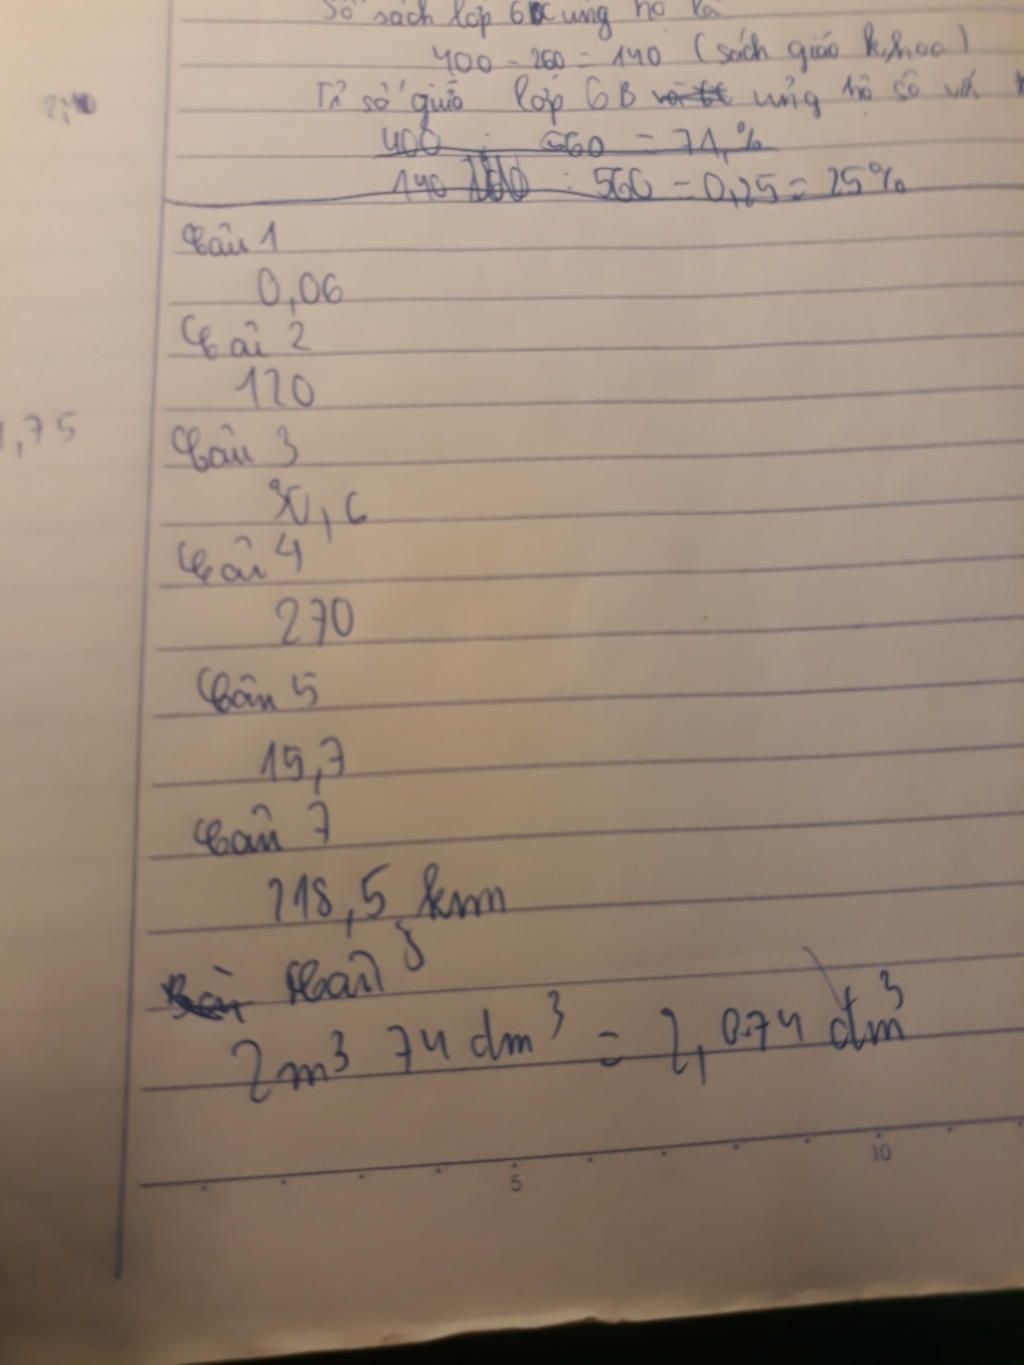 Số sách lớp 6 ủng hộ là
400 - 260 = 140 (sách giáo khoa)
Tỉ số giữa lớp 6B ủng hộ so với
2,
400 : 560 = 71,%
140 : 560 = 0,25 = 25%
Câu 1
0,06
Câu 2
120
1,75
Câu 3
30,6
Câu 4
270
Câu 5
15,7
Câu 7
218,5 km
Câu 8
2m³ 74 dm³ = 2,074 dm³
5
10